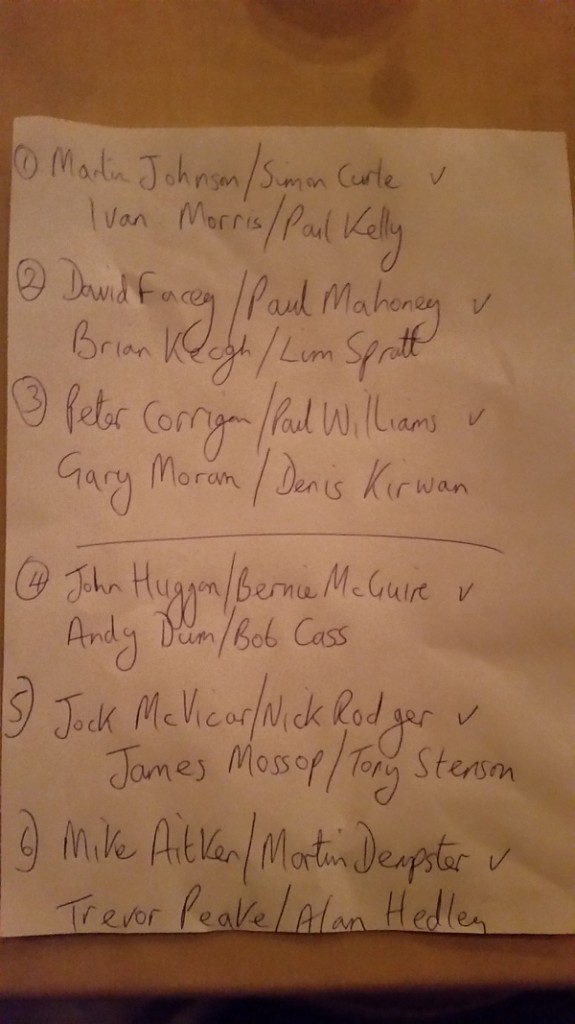 ① Martin Johnson/Simon Curtle v
Ivan Morris/Paul Kelly
② David Facey/Paul Mahoney v
Brian Keogh/Liam Spratt
③ Peter Corrigan/Paul Williams v
Gary Moran/Denis Kirwan
④ John Huggan/Bernie McGuire v
Andy Dunn/Bob Cass
5) Jock McVicar/Nick Rodger v
James Mossop/Tony Stenson
6) Mike Aitken/Martin Dempster v
Trevor Peake/Alan Hedley